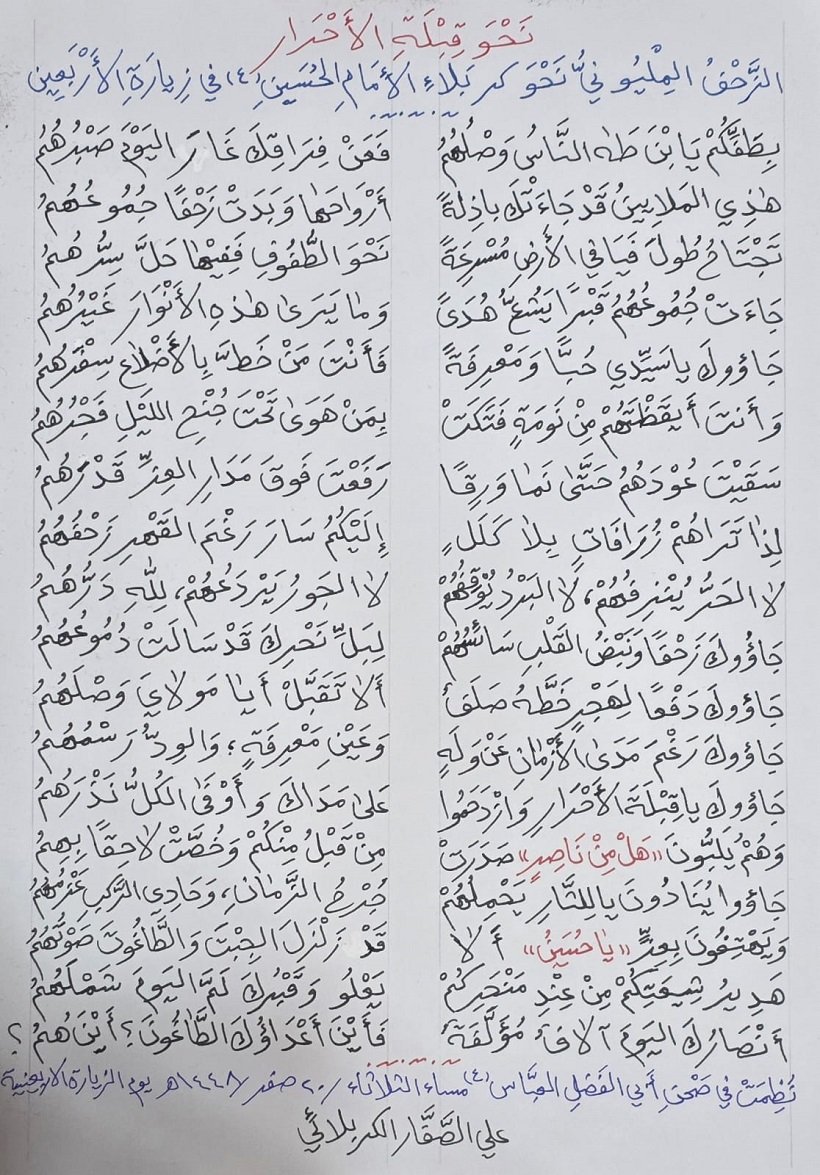 نَحْوَ قِبْلَةِ الأَحْرَار
الزَّحْفُ المِلْيُونِيُّ نَحْوَ كربَلاءِ الأمَامِ الحُسَينِ (ع) في زِيارَةِ الأَرْبَعِين
بِطَفِّكُمْ يَا بْنَ طٰه النَّاسُ وَصْلُهُمُ فَعَنْ فِرَاقِكَ غَارَ اليَوْمَ صَبْرُهُمُ
هٰذِي المَلايِينُ قَدْ جَاءَتْكَ باذِلةً أرْوَاحَها وَبَدَتْ زَحْفًا جُمُوعُهُمُ
تَجْتَاحُ طُولَ فَيَافي الأَرضِ مُسْرِعَةً نَحْوَ الطُّفُوفِ فَفِيْها حَلَّ سِرُّهُمُ
جَاءَتْ جُمُوعُهُمُ قَبْرًا يَشُعُّ هُدَىً وَما يَرَىٰ هٰذِهِ الأَنْوَارَ غَيْرُهُمُ
جَاؤوكَ ياسَيِّدِي حُبًّا وَمَعْرِفَةً فَأَنْتَ مَنْ خَطَّ بِالأَضْلاعِ سِفْرَهُمُ
وَأَنتَ أَيقَظْتَهُمْ مِنْ نَومَةٍ فَتَكَتْ بِمَنْ هَوَىٰ تَحْتَ جُنْحِ الليْلِ فَجْرُهُمُ
سَقَيْتَ عُوْدَهُمُ حَتَّىٰ نَما وَرِقًا رَفَعْتَ فَوقَ مَدَارِ العِزِّ قَدْرَهُمُ
لِذا تَرَاهُمْ زُرَافَاتٍ بِلا كَلَلٍ إِلَيْكُمُ سَارَ رَغْمَ القَهْرِ زَحْفُهُمُ
لا الحَرُّ يُنْزِفُهُمْ، لا البَرْدُ يُوْقِفُهُمْ لا الجَورُ يَرْدَعُهُمْ، لِلّٰهِ دَرُّهُمُ
جَاؤُوكَ زَحْفًا وَنَبْضُ القَلْبِ سَائسُهُمْ لِبَلِّ نَحْرِكَ قَدْ سَالَتْ دُمُوعُهُمُ
جَاؤوكَ دَفْعًا لِهَجْرٍ خَطَّهُ صَلَفٌ أَلا تَقَبَّلْ أَيا مَولايَ وَصْلَهُمُ
جَاؤوكَ رَغْمَ مَدَىٰ الأَزْمانِ عَنْ وَلَهٍ وَعَيْنِ مَعْرِفَةٍ؛ وَالوِدُّ رَسْمُهُمُ
جَاؤوكَ ياقِبْلَةَ الأَحْرَارِ وَازْدَحَمُوا عَلىٰ مَدَاكَ وَأَوْفَىٰ الكُلُّ نَذْرَهُمُ
وَهُمْ يُلَبُّونَ «هَلْ مِنْ نَاصِرٍ» صَدَرَتْ مِنْ قَبْلُ مِنْكُمْ وَخُصَّتْ لاحِقًا بِهِمُ
جَاؤوا يُنَادُونَ يالِلثَّارِ يَحْمِلُهُمْ جُرْحُ الزَّمانِ، وَحَادِي الرَّكبِ عَزْمُهُمُ
وَيَهْتِفُونَ بِعِزٍّ «يا حُسَيْنُ» أَلا قَدْ زَلْزَلَ الجِبْتَ وَالطَّاغُوتَ صَوْتُهُمُ
هَدِيرُ شِيعَتِكُمْ مِنْ عِنْدِ مَنْحَرِكُمْ يَعْلُو وَقَبْرُكَ لَمَّ اليَومَ شَمْلَهُمُ
أَنْصَارُكَ اليَومَ آلافٌ مُؤَلَّفَةٌ فَأَيْنَ أَعْدَاؤُكَ الطَّاغُونَ؟ أَيْنَ هُمُ؟
نُظِمَتْ في صَحْنِ أَبي الفَضلِ العبَّاس (ع) مساء الثلاثاء / ٢٠ صفر / ١٤٤٨هـ يوم الزيارة الاربعينية
علي الصَّفَّار الكربلائي